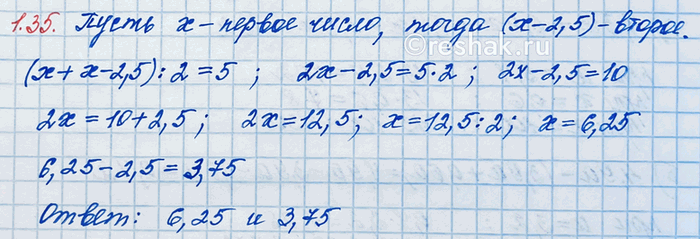 1.35. Пусть x - первое число, тогда (x-2,5) - второе.
reshak.ru
(x+x-2,5):2=5; 2x-2,5=5·2; 2x-2,5=10
2x=10+2,5; 2x=12,5; x=12,5:2; x=6,25
6,25-2,5=3,75
Ответ: 6,25 и 3,75